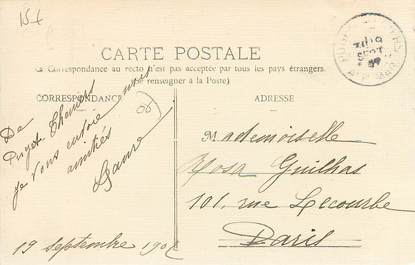 15€
CARTE POSTALE
(La Correspondance au recto n'est pas acceptée par tous les pays étrangers.
Se renseigner à la Poste)
CORRESPONDANCE
De
Puget Théniers
je vous envoie mes
amitiés
(06)
19 septembre 190
ADRESSE
Mademoiselle
Rosa Guilhas
101, rue Lecourbe
Paris
SEPT